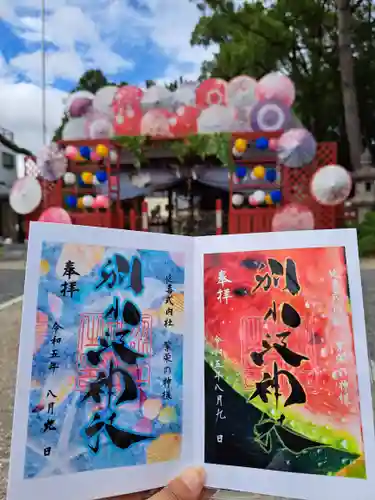 延喜式内社 繁栄の神様
別小江神社
奉拝
令和五年 八月九日
延喜式内社 繁栄の神様
別小江神社
奉拝
令和五年八月九日